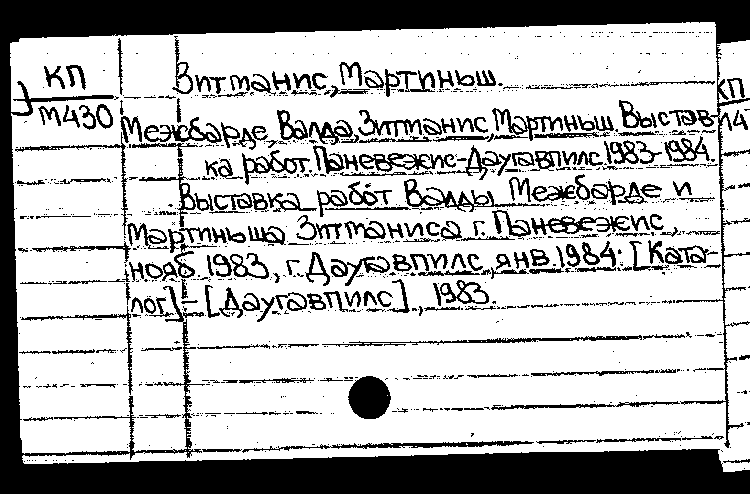 КП
М430
Зитманис, Мартиньш.
Межбарде, Валда, Зитманис, Мартиньш Выстав-
ка работ. Паневежис-Даугавпилс 1983-1984.
Выставка работ Валды Межбарде и
Мартиньша Зитманиса г. Паневежис,
нояб 1983, г. Даугавпилс, янв. 1984. [Ката-
лог] - [Даугавпилс], 1983.
КП